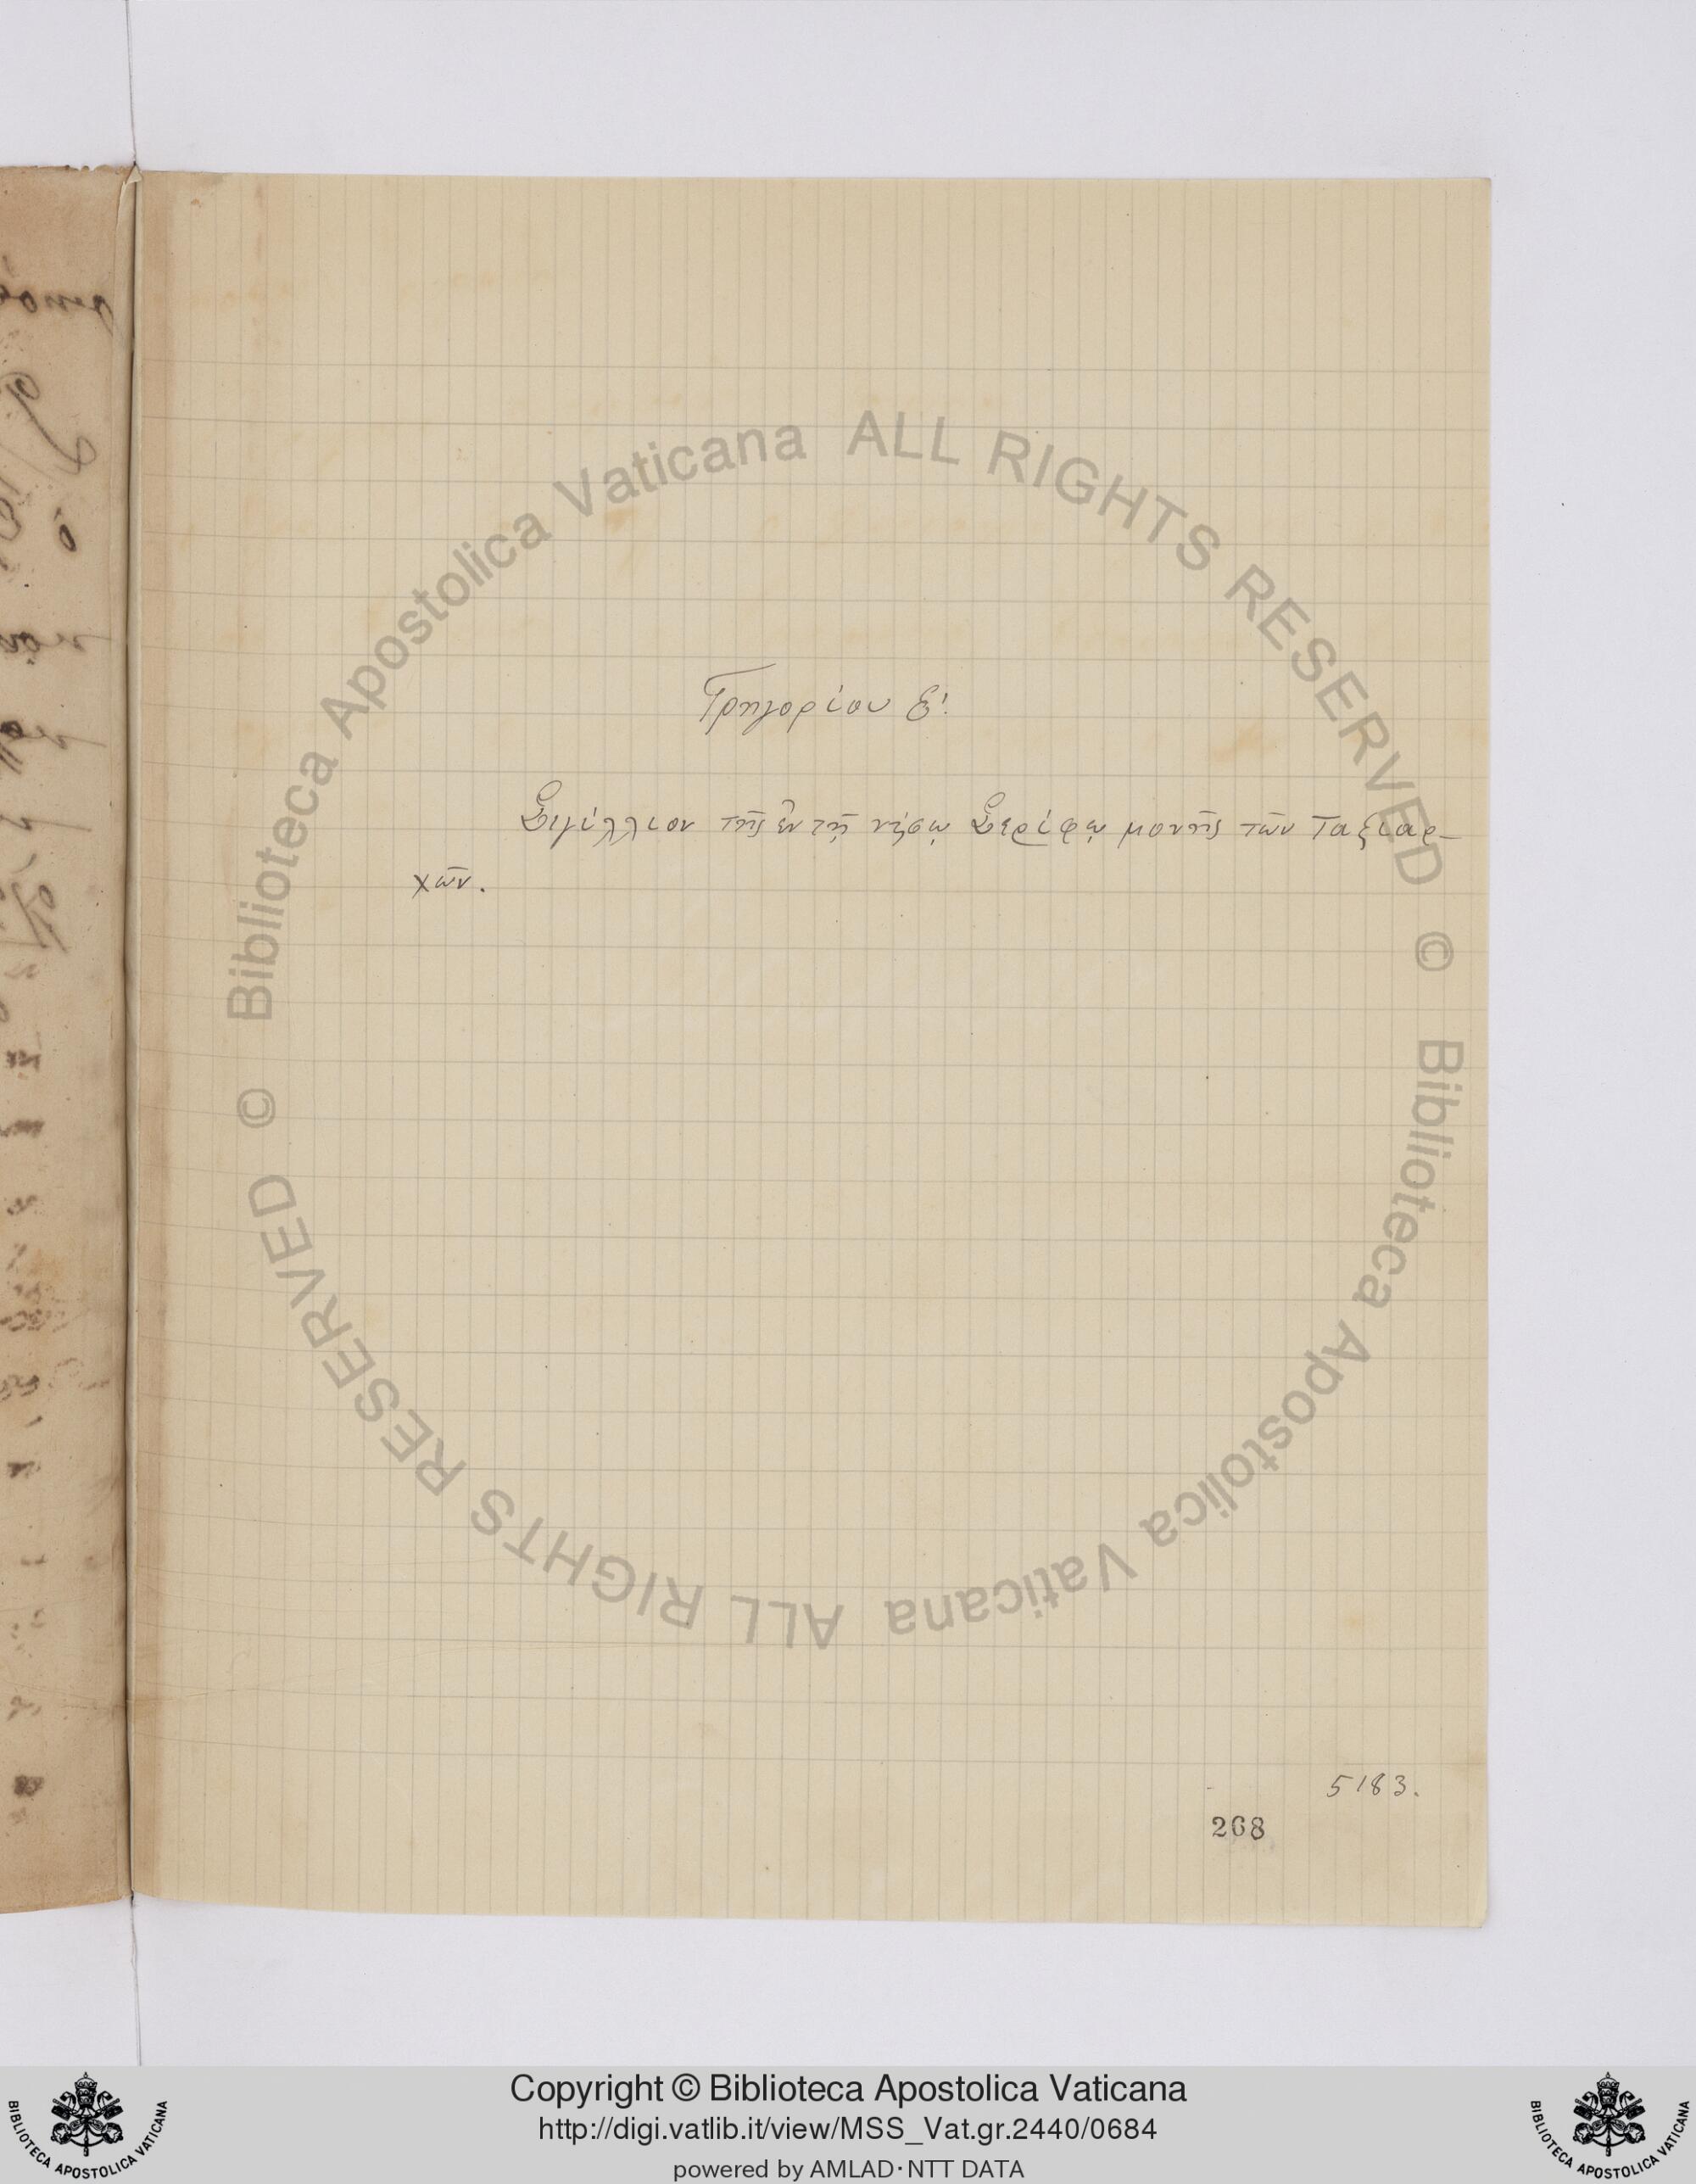 Γρηγορίου Ε'.
Σιγίλλιον τῆς ἐν τῇ νήσῳ Σερίφῳ μονῆς τῶν Ταξιαρ-
χῶν.
5183.
268
© Biblioteca Apostolica Vaticana ALL RIGHTS RESERVED
© Biblioteca Apostolica Vaticana ALL RIGHTS RESERVED
Copyright © Biblioteca Apostolica Vaticana
http://digi.vatlib.it/view/MSS_Vat.gr.2440/0684
powered by AMLAD·NTT DATA
BIBLIOTECA APOSTOLICA VATICANA
BIBLIOTECA APOSTOLICA VATICANA